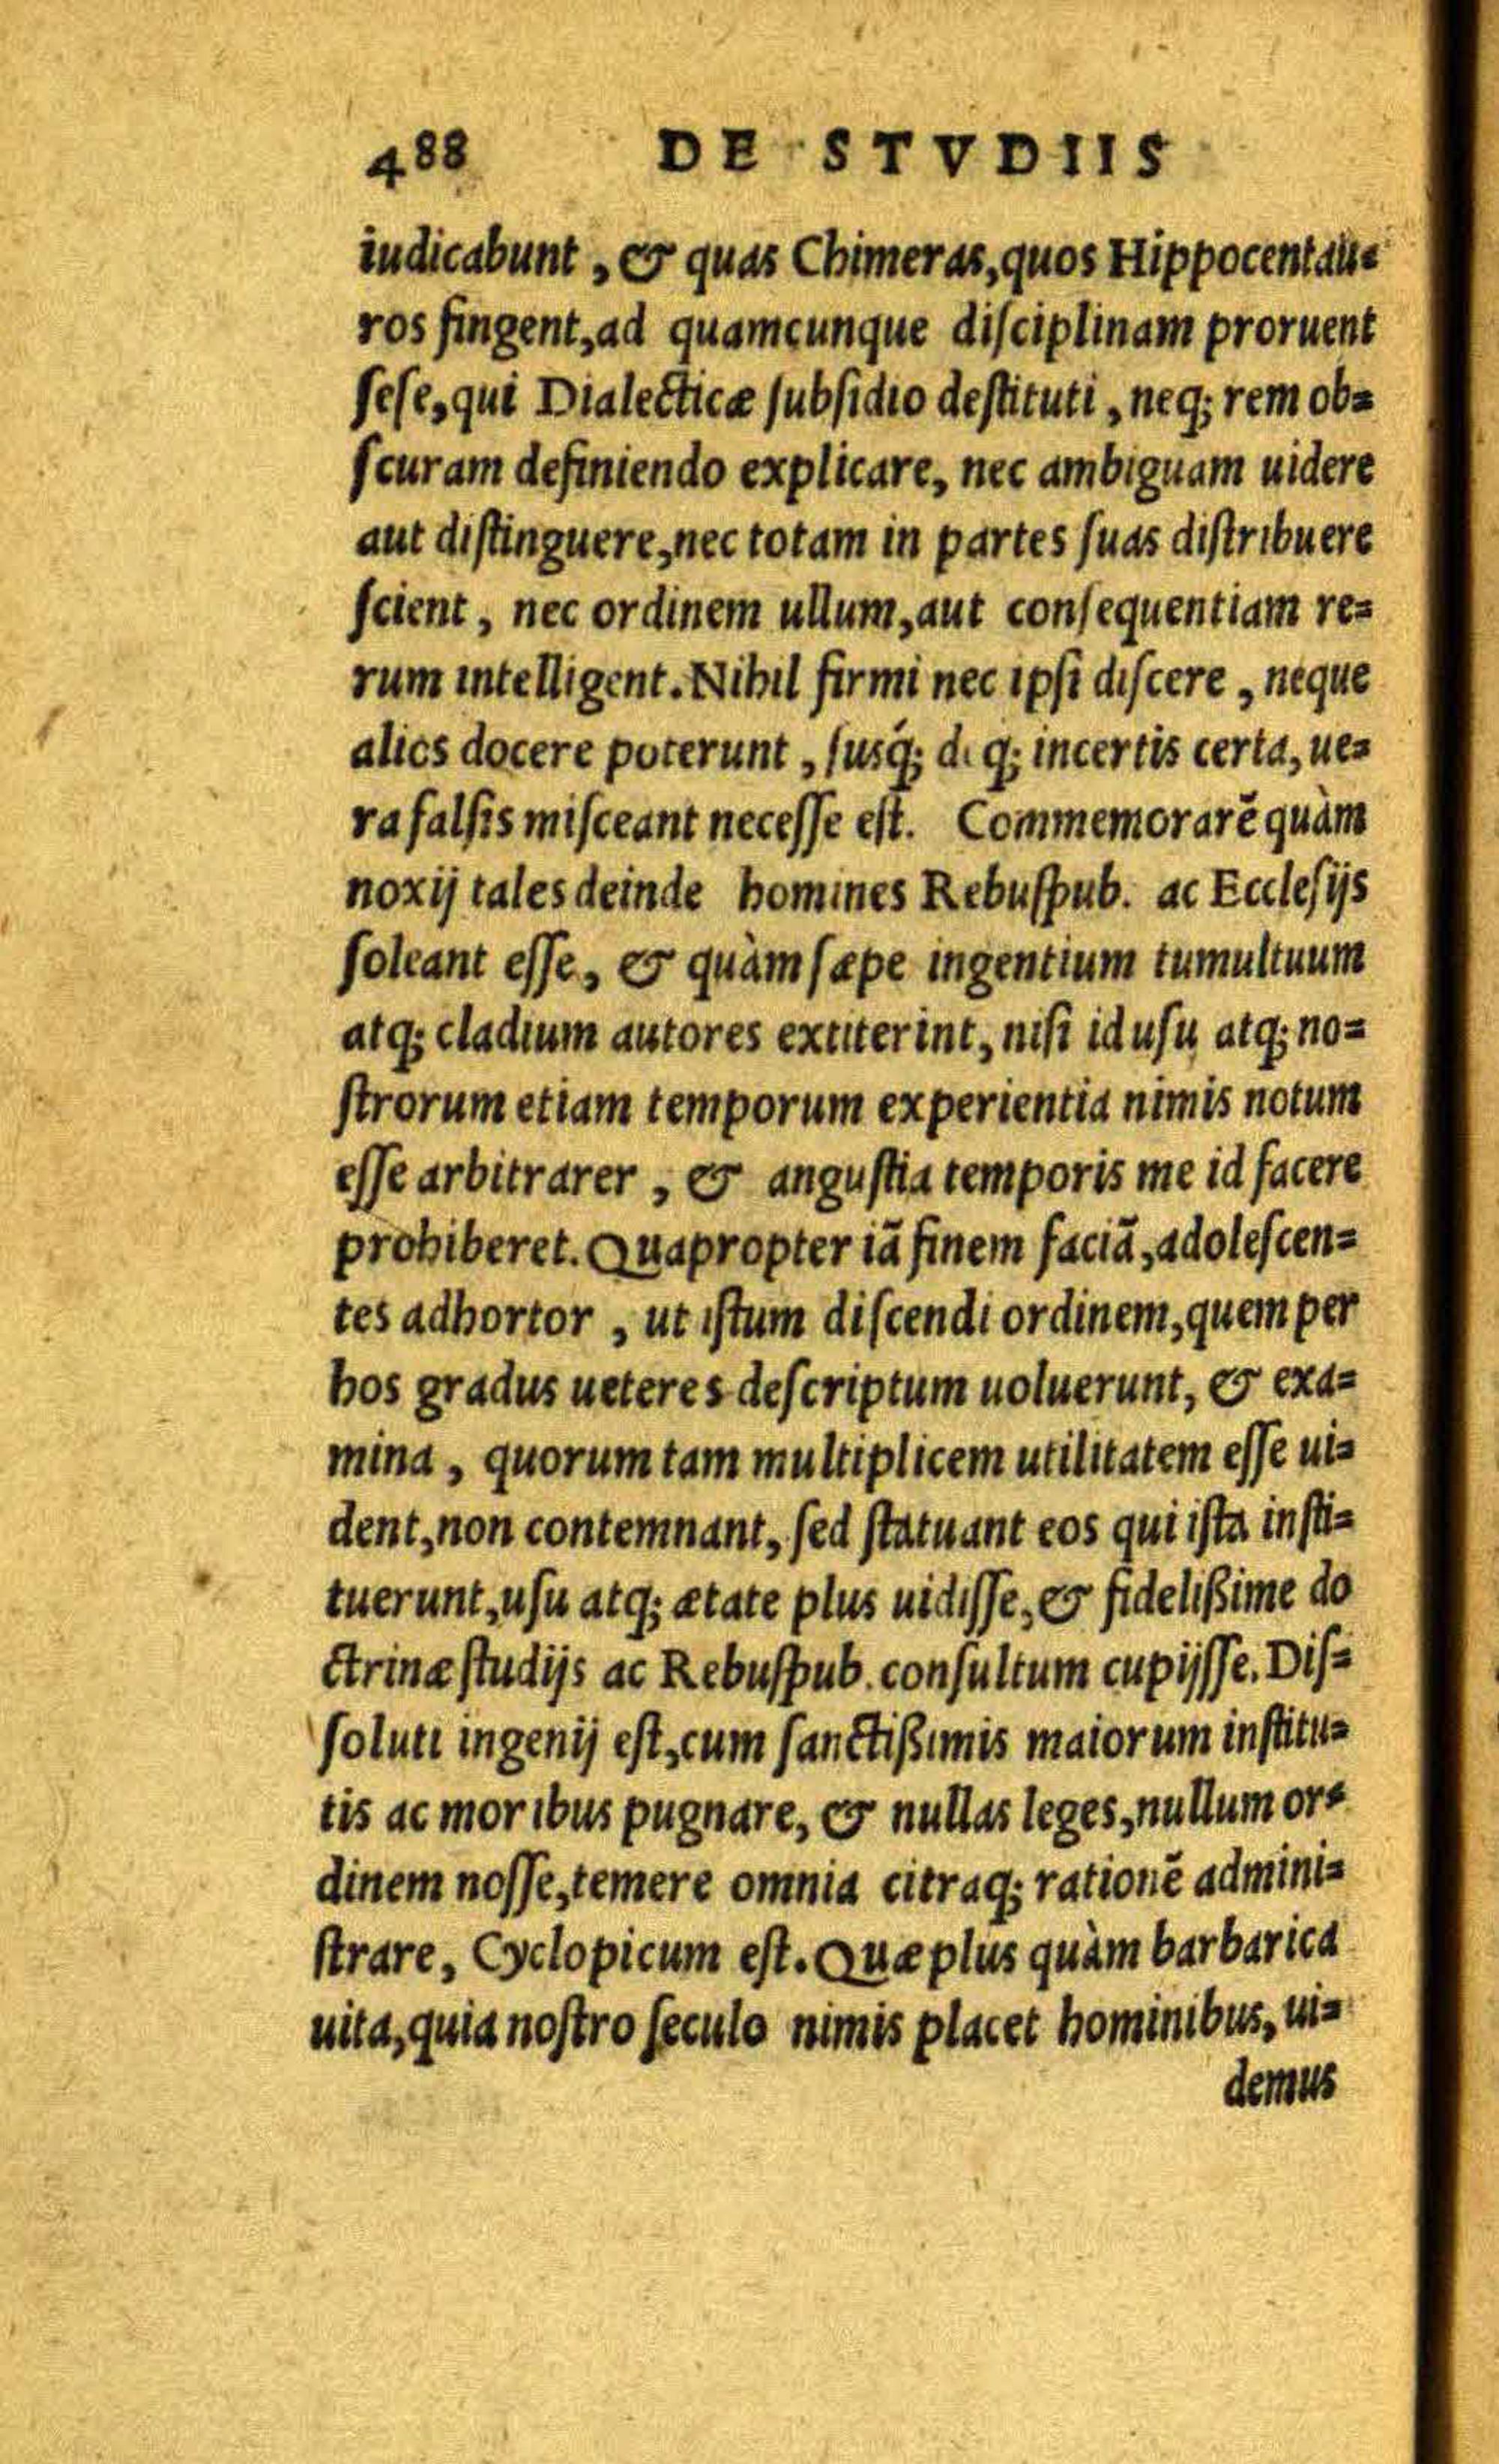 488 DE STVDIIS
iudicabunt, & quas Chimeras, quos Hippocentau-
ros fingent, ad quamcunque diſciplinam proruent
ſeſe, qui Dialecticæ ſubſidio deſtituti, neq; rem ob-
ſcuram definiendo explicare, nec ambiguam uidere
aut diſtinguere, nec totam in partes ſuas diſtribuere
ſcient, nec ordinem ullum, aut conſequentiam re-
rum intelligent. Nihil firmi nec ipſi diſcere, neque
alios docere poterunt, ſusq́; deq; incertis certa, ue-
ra falſis miſceant neceſſe eſt. Commemorarē quàm
noxij tales deinde homines Rebuſpub. ac Eccleſijs
ſoleant eſſe, & quàm ſæpe ingentium tumultuum
atq; cladium autores extiterint, niſi id uſu atq; no-
ſtrorum etiam temporum experientia nimis notum
eſſe arbitrarer, & anguſtia temporis me id facere
prohiberet. Quapropter iā finem faciā, adoleſcen-
tes adhortor, ut iſtum diſcendi ordinem, quem per
hos gradus ueteres deſcriptum uoluerunt, & exa-
mina, quorum tam multiplicem utilitatem eſſe ui-
dent, non contemnant, ſed ſtatuant eos qui iſta inſti-
tuerunt, uſu atq; ætate plus uidiſſe, & fidelißime do
ctrinæ ſtudijs ac Rebuſpub. conſultum cupijſſe. Diſ-
ſoluti ingenij eſt, cum ſanctißimis maiorum inſtitu-
tis ac moribus pugnare, & nullas leges, nullum or-
dinem noſſe, temere omnia citraq; rationē admini-
ſtrare, Cyclopicum eſt. Quæ plus quàm barbarica
uita, quia noſtro ſeculo nimis placet hominibus, ui-
demus